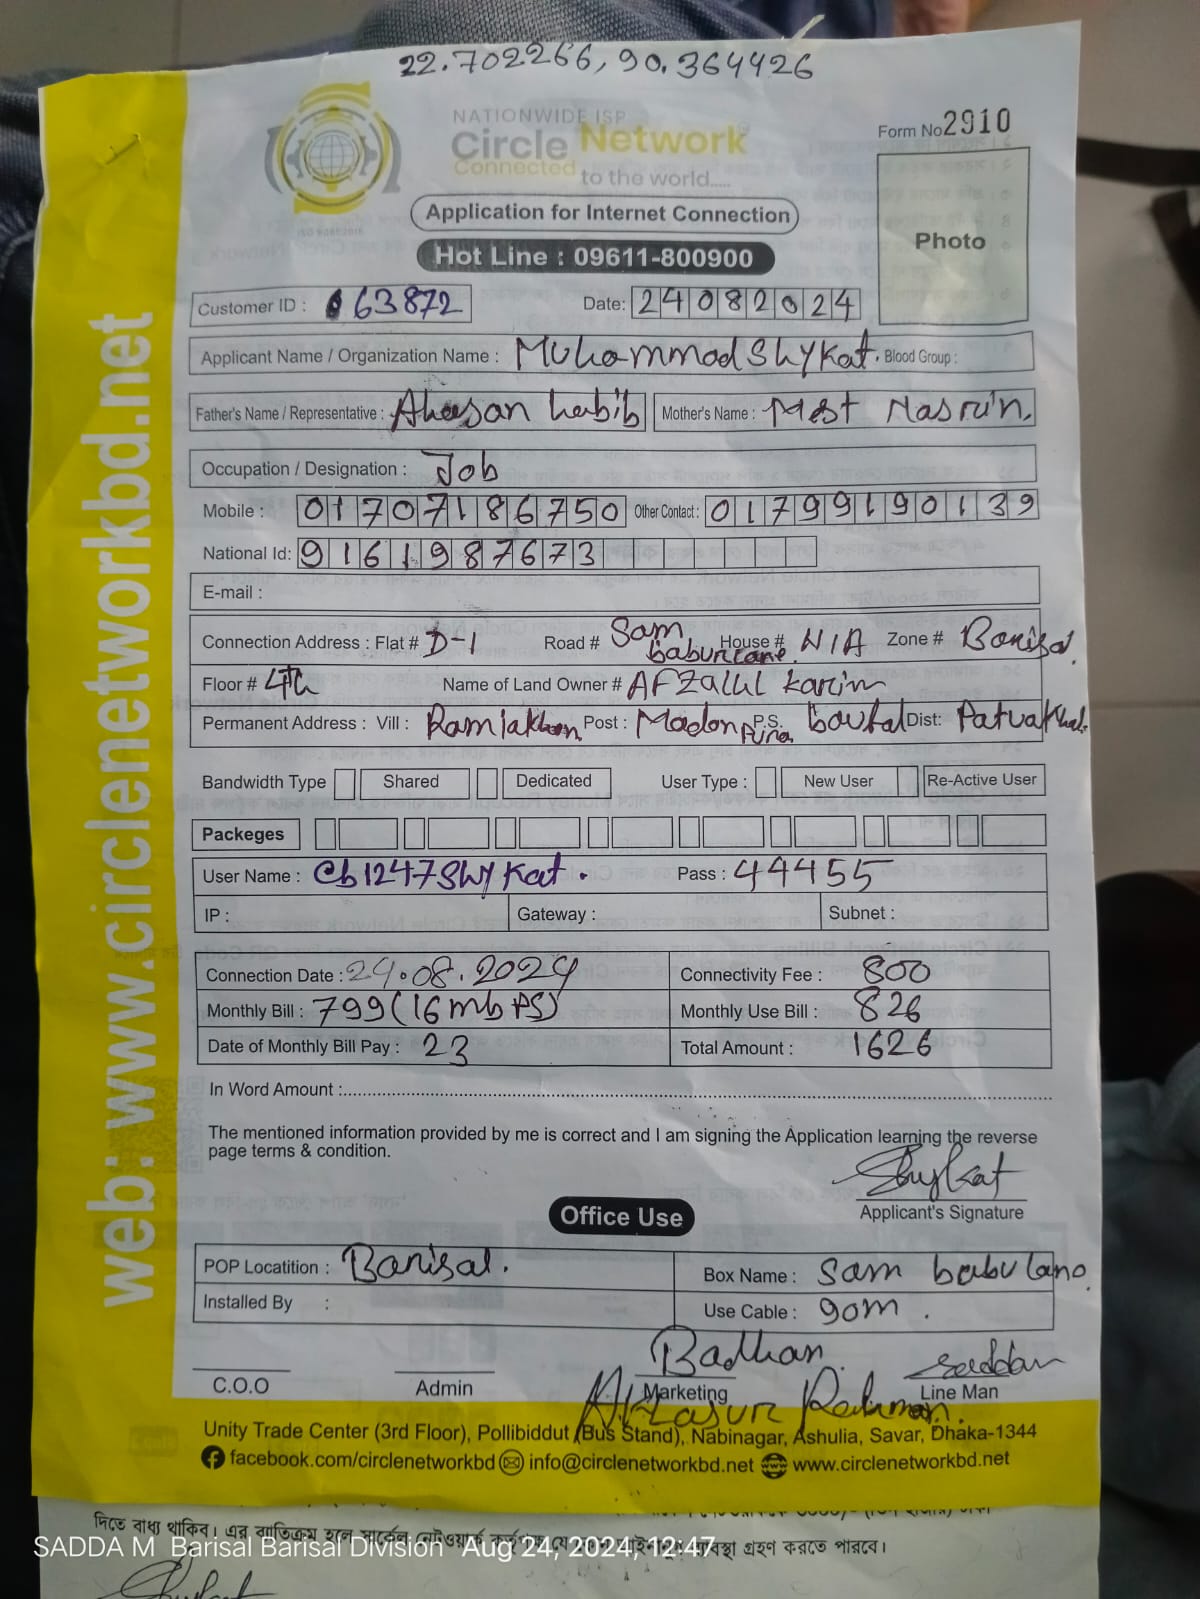 22.702266, 90.364426
NATIONWIDE ISP
Circle Network
Connected to the world.....
Form No 2910
Photo
ISO 9001:2015
Application for Internet Connection
Hot Line : 09611-800900
Customer ID : 63872 Date: 24082024
Applicant Name / Organization Name : Muhammod Shykat. Blood Group :
Father's Name / Representative : Ahasan habib Mother's Name : Most Nasrin.
Occupation / Designation : Job
Mobile : 01707186750 Other Contact : 01799190139
National Id: 9161987673
E-mail :
Connection Address : Flat # D-1 Road # Sam babur lane. House # N/A Zone # Barisal.
Floor # 4th Name of Land Owner # AFZalul karim
Permanent Address : Vill : Ramlakhan Post : Madanpura P.S. baufal Dist: Patuakhali
Bandwidth Type Shared Dedicated User Type : New User Re-Active User
Packeges
User Name : Cb1247Shykat. Pass : 44455
IP : Gateway : Subnet :
Connection Date : 24.08.2024 Connectivity Fee : 800
Monthly Bill : 799 (16 mbps) Monthly Use Bill : 826
Date of Monthly Bill Pay : 23 Total Amount : 1626
In Word Amount :
The mentioned information provided by me is correct and I am signing the Application learning the reverse
page terms & condition.
Shykat
Applicant's Signature
Office Use
POP Locatition : Barisal. Box Name : Sam babu lane
Installed By : Use Cable : 90m.
Badhan.
Saddam
C.O.O Admin Marketing Line Man
Rahman.
Unity Trade Center (3rd Floor), Pollibiddut (Bus Stand), Nabinagar, Ashulia, Savar, Dhaka-1344
facebook.com/circlenetworkbd info@circlenetworkbd.net www.circlenetworkbd.net
web: www.circlenetworkbd.net
দিতে বাধ্য থাকিব। এর ব্যতিক্রম হলে সার্কেল নেটওয়ার্ক কর্তৃপক্ষ ব্যবস্থা গ্রহণ করতে পারবে।
SADDA M Barisal Barisal Division Aug 24, 2024, 12:47
Shykat